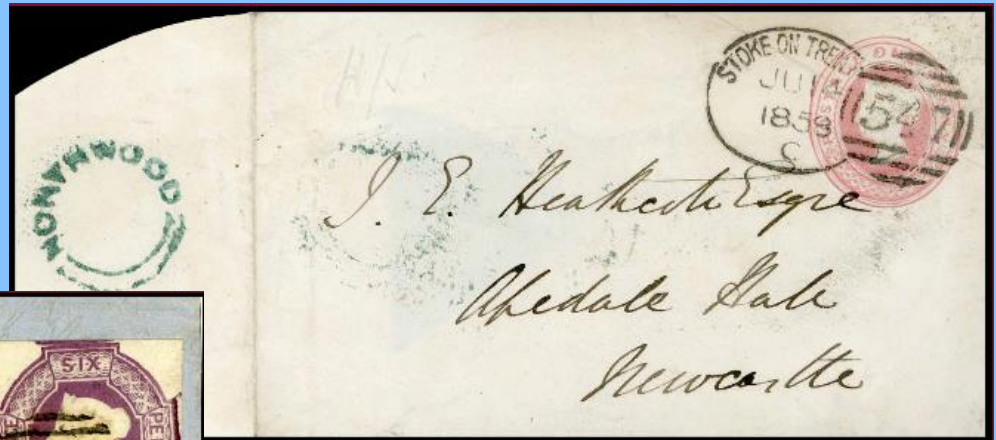 STOKE ON TRENT
1859
C
547
MONYHWOOD
J. E. Heathcote Esqre
Apedale Hall
Newcastle
SIX
PE